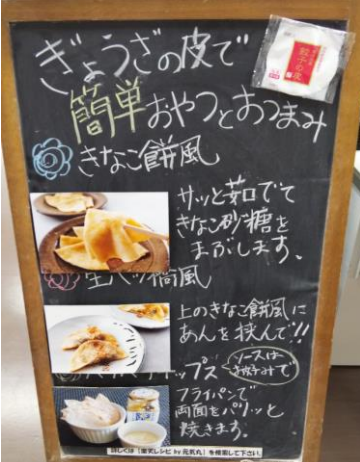 ぎょうざの皮で
簡単おやつとおつまみ
餃子の皮
きなこ餅風
サッと茹でて
きなこ砂糖を
まぶします。
生八ツ橋風
上のきなこ餅風に
あんを挟んで!!
チップス
ソースは
お好みで
フライパンで
両面をパリッと
焼きます。
詳しくは「東京レシピ by 元気丸」を検索して下さい。